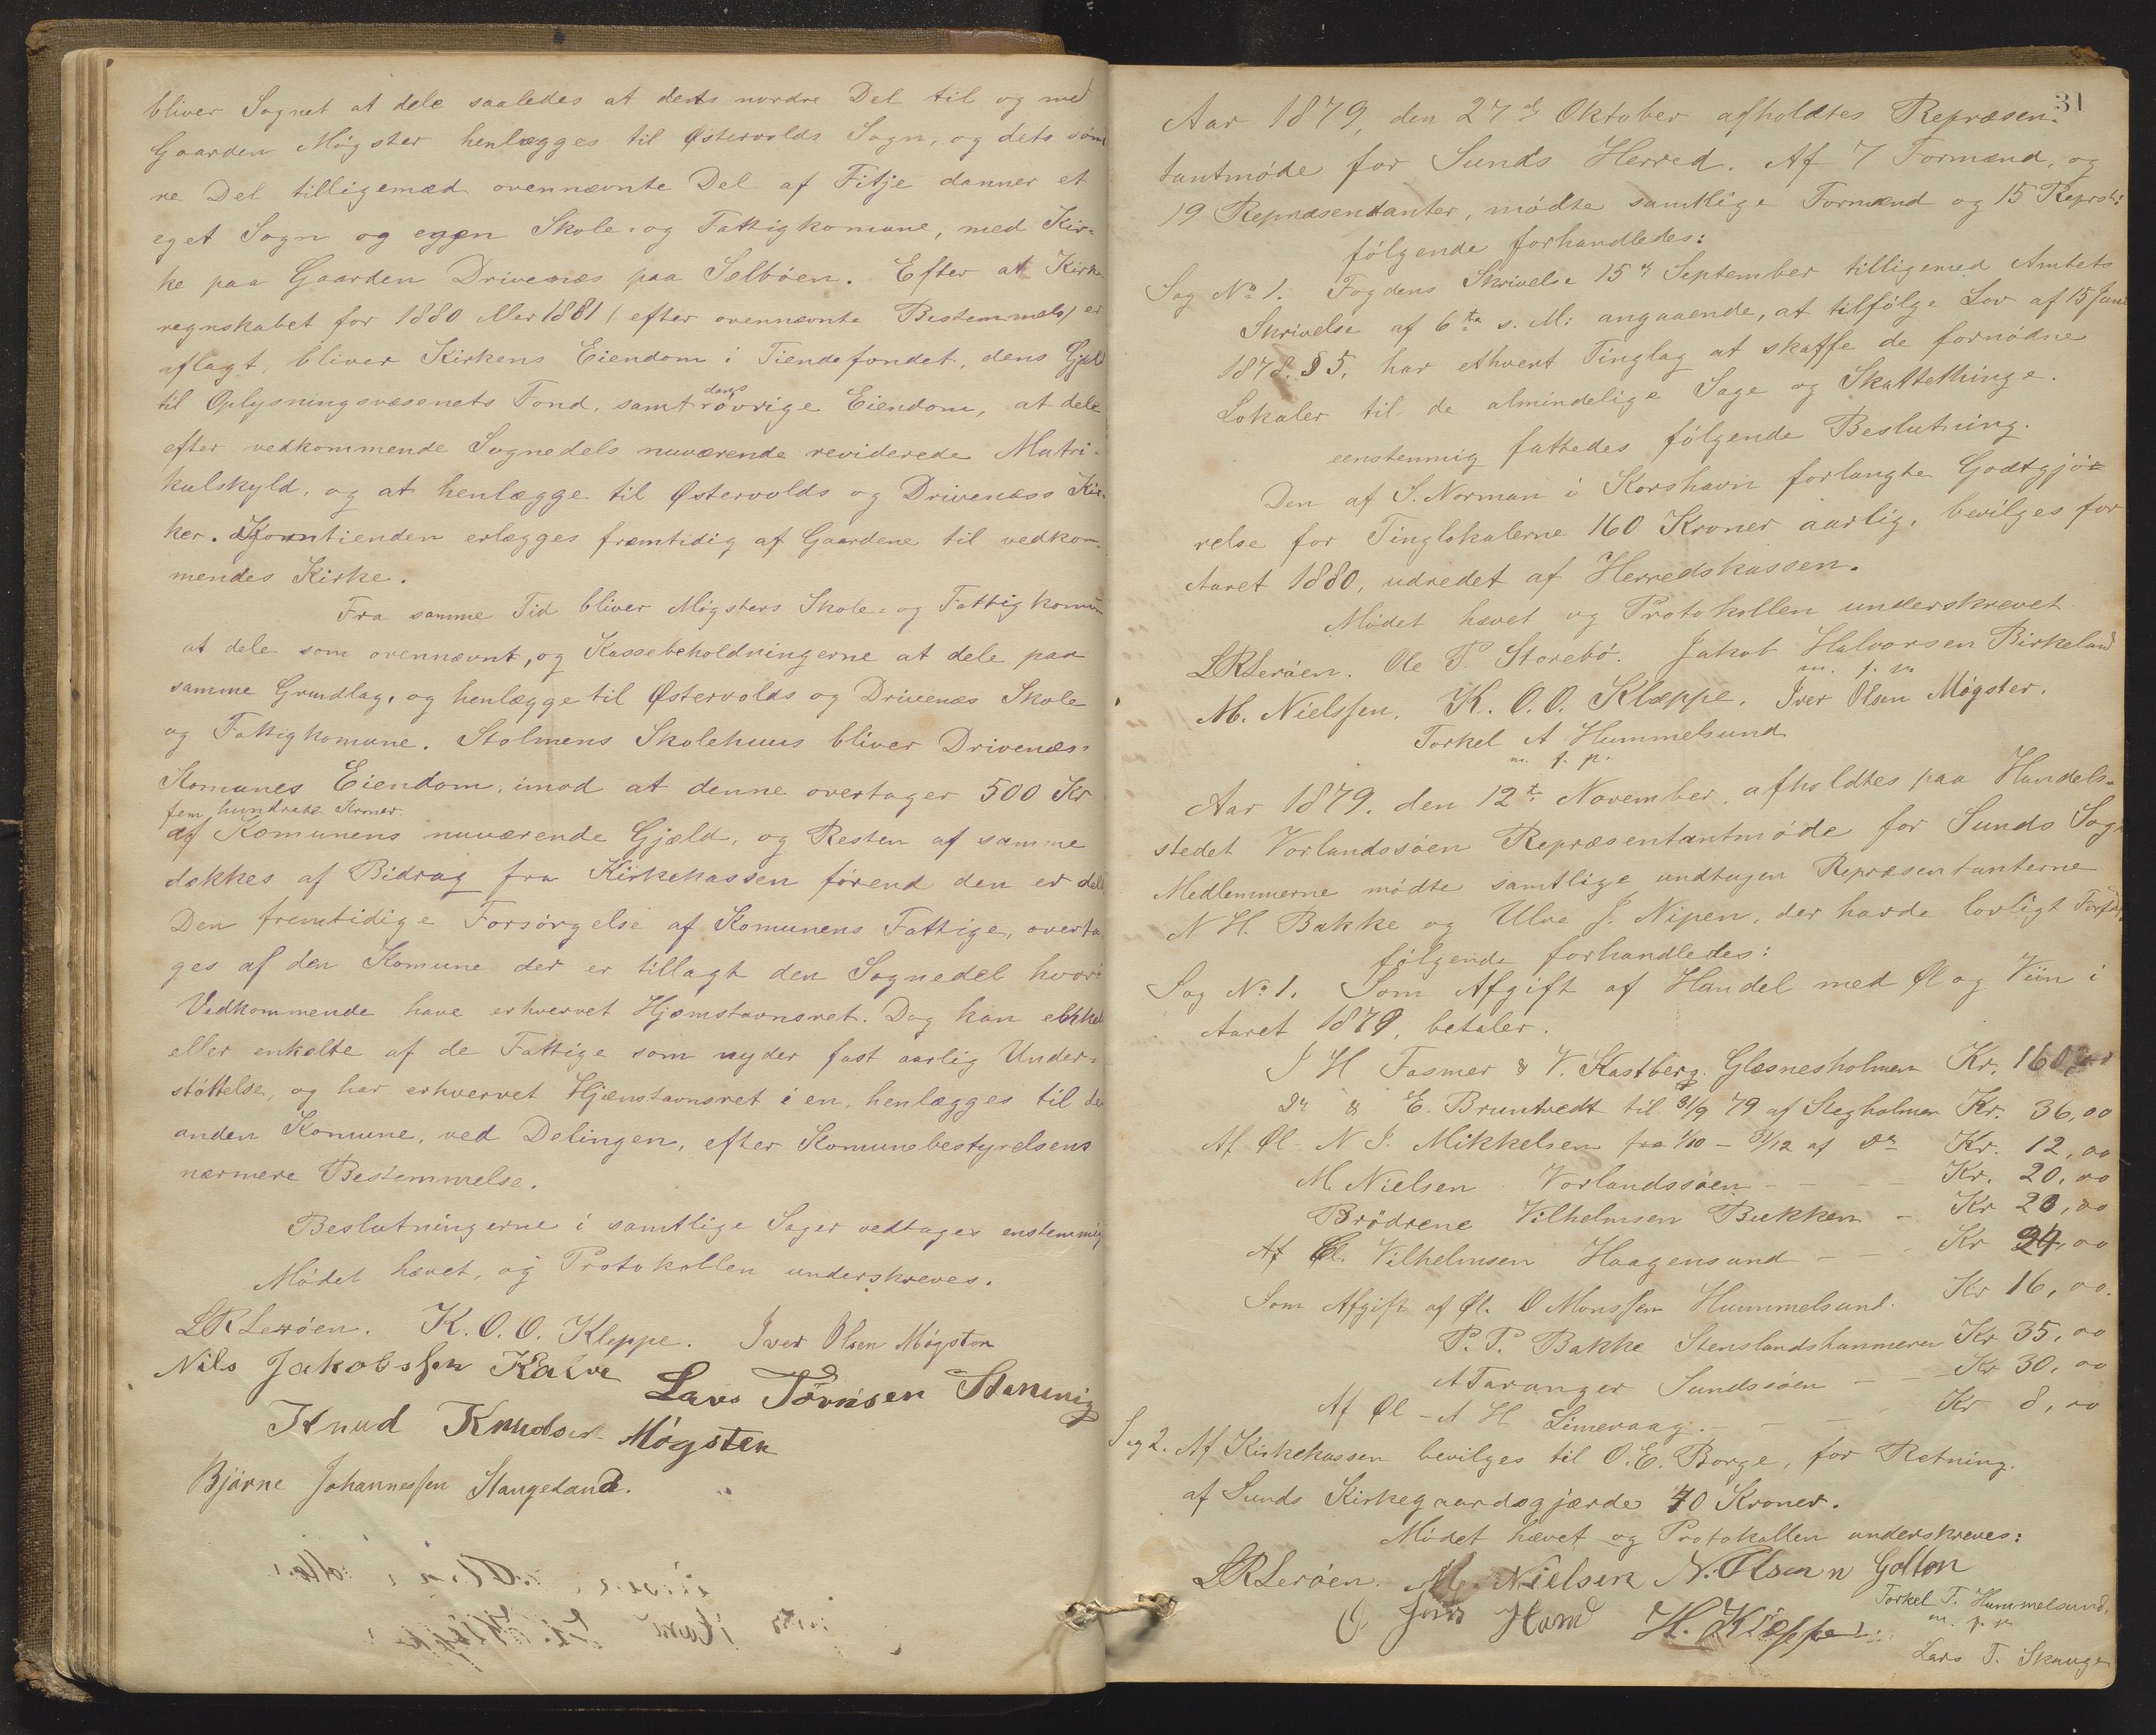 bliver Sognet at dele saaledes at dets nordre Del til og med
Gaarden Møgster henlægges til Østervolds Sogn, og dets sønd
re Del tilligemed ovennævnte Del af Fitje danner et
eget Sogn og egen Skole- og Fattigkomune, med Kir-
ke paa Gaarden Drivenæs paa Selbøen. Efter at Kirke
regnskabet for 1880 eller 1881 (efter ovennævnte Bestemmels) er
aflagt, bliver Kirkens Eiendom i Tiendefondet, dens Gjæld
til Oplysningsvæsenets Fond, samt dens øvrige Eiendom, at dele
efter vedkommende Sognedels nuværende reviderede Matri-
kulskyld, og at henlægge til Østervolds og Drivenæss Kir-
ker. Korntienden erlægges fremtidig af Gaardene til vedkom-
mendes Kirke.
Fra samme Tid bliver Møgsters Skole- og Fattigkomun
at dele som ovennævnt, og Kassebeholdningerne at dele paa
samme Grundlag, og henlægge til Østervolds og Drivenæs Skole
og Fattigkomune. Stolmens Skolehuus bliver Drivenæs-
Komunes Eiendom, imod at denne overtager 500 Kr
fem hundrede Kroner
af Komunens nuværende Gjæld, og Resten af samme
dækkes af Bidrag fra Kirkekassen førend den er delt
Den fremtidige Forsørgelse af Komunens Fattige, overta
ges af den Komune der er tillagt den Sognedel hvori
Vedkommende have erhvervet Hjemstavnsret. Dog kan enkel
eller enkelte af de Fattige som nyder fast aarlig Under-
støttelse, og har erhvervet Hjemstavnsret i en, henlægges til den
anden Komune, ved Delingen, efter Komunebestyrelsens
nærmere Bestemmelse.
Beslutningerne i samtlige Sager vedtages enstemmig
Mødet hævet, og Protokollen underskreves.
LRLerøen. K. O. O. Kleppe. Iver Olsen Møgster
Nils Jakobssen Kalve Lars Tørrisen
Knud Knudsen Møgster
Bjarne Johannessen Haugeland.
31
Aar 1879, den 27de Oktober afholdtes Repræsen-
tantmøde for Sunds Herred. Af 7 Formænd, og
19 Repræsentanter, mødte samtlige Formænd og 15 Reprst:
følgende forhandledes:
Sag No 1. Fogdens Skrivelse 15de September tilligemed Amtets
Skrivelse af 6te s. M: angaaende, at tilfølge Lov af 15 Juni
1878, § 5, har ethvert Tinglag at skaffe de fornødne
Lokaler til de almindelige Sage og Skattethinge.
eenstemmig fattedes følgende Beslutning.
Den af S. Norman i Korshavn forlangte Godtgjø-
relse for Tinglokalerne 160 Kroner aarlig, bevilges for
Aaret 1880, udredet af Herredskassen.
Mødet hævet og Protokollen underskrevet
LRLerøen. Ole P. Storebø. Jakob Halvorsen Birkeland
m. f. p.
M. Nielssen. K. O. O. Klæppe. Iver Olsen Møgster.
Torkel A Hummelsund
m. f. p.
Aar 1879. den 12te November, afholdtes paa Handels-
stedet Vorlandssøen Repræsentantmøde for Sunds Sogn
Medlemmerne mødte samtlige undtagen Repræsentanterne
N H. Bakke og Ulve J. Nipen, der havde lovligt Forfald
følgende forhandledes:
Sag No 1. Som Afgift af Handel med Øl og Viin i
Aaret 1879, betaler.
J H Fasmer & V. Kastberg. Glesnesholmen Kr. 160,00
Do & E. Bruntvedt til 31/9 79 af Stegholmen Kr. 36,00
Af Øl N J. Mikkelsen fra 1/10 – 31/12 af Do Kr. 12,00
M. Nielsen Vorlandssøen – – – Kr. 20,00
Brødrene Vilhelmsen Bukken – Kr 20,00
Af Øl. Vilhelmsen Haagensund – – Kr 24,00
Som Afgift af Øl. O Monssen Hummelsund. Kr 16,00.
P. P. Bakke Stenslandshammeren Kr 35,00
A Taranger Sundssøen – – Kr 30,00
Af Øl – A H Limevaag. – – Kr 8,00
Sag 2. Af Kirkekassen bevilges til O. E. Borge, for Retning
af Sunds Kirkegaardsgjærde 40 Kroner.
Mødet hævet og Protokollen underskreves:
LRLerøen. M. Nielsen N. Olsen Golten
Torkel T. Hummelsund,
m. f. p.
O Jons Ham H. Klæppe.
Lars T. Skauge